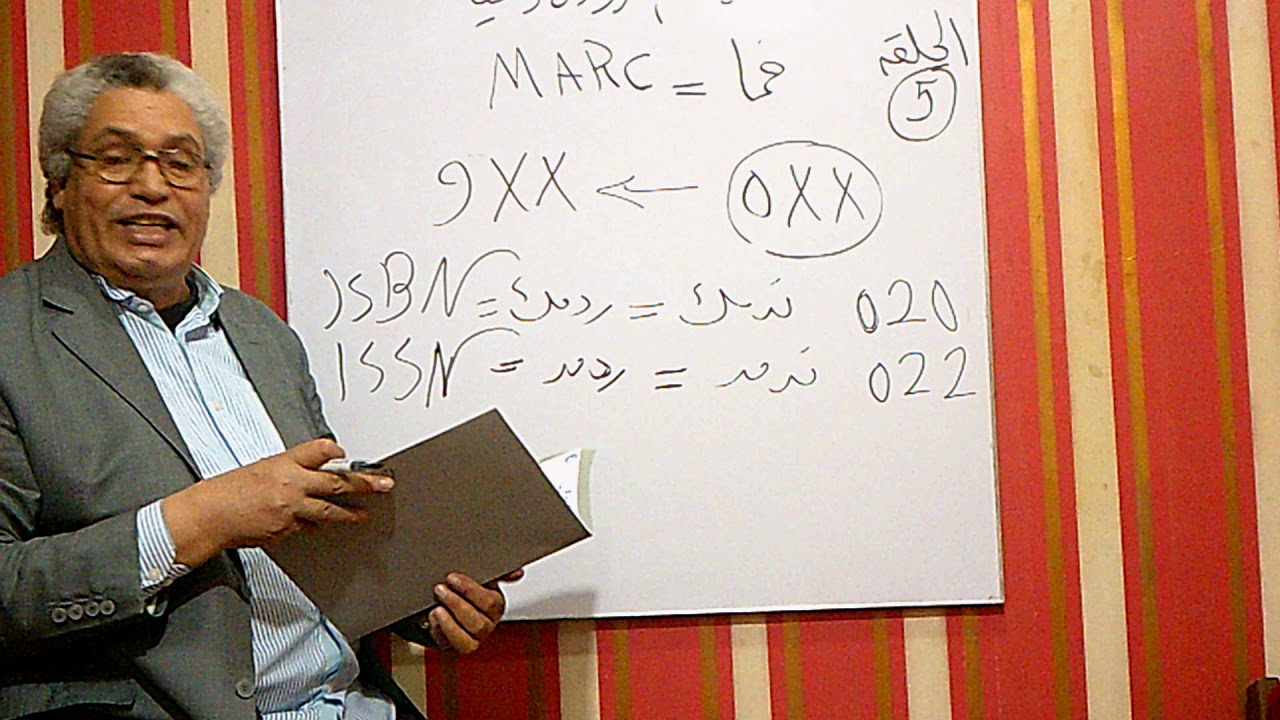 الحلقه
5
فما = MARC
0XX ← 9XX
020 تدمك = ردمك = ISBN
022 تدمد = ردمد = ISSN